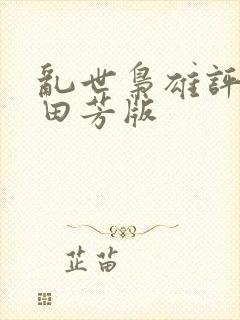 亂世梟雄評
田芳版
芷苗